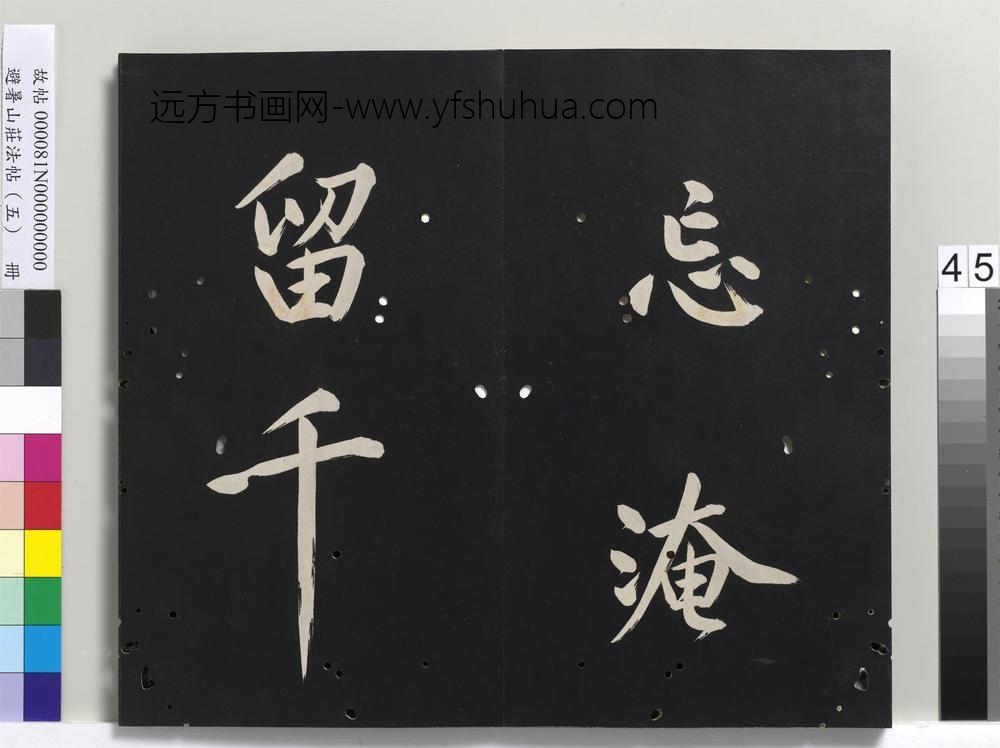 远方书画网-www.yfshuhua.com
忘淹
留千
故帖 000081N000000000
避暑山莊法帖（五） 冊
45